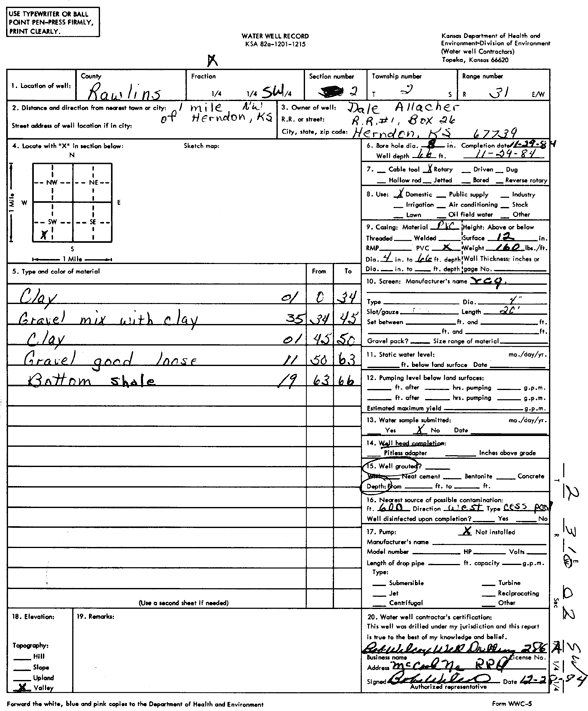 USE TYPEWRITER OR BALL
POINT PEN-PRESS FIRMLY,
PRINT CLEARLY.
WATER WELL RECORD
KSA 82a-1201-1215
Kansas Department of Health and
Environment-Division of Environment
(Water well Contractors)
Topeka, Kansas 66620
1. Location of well: County Rawlins Fraction 1/4 1/4 SW/4 Section number 2 Township number T 2 S Range number R 31 E/W
2. Distance and direction from nearest town or city: 1 mile NW of Herndon, KS
Street address of well location if in city:
3. Owner of well: Dale Allacher
R.R. or street: R.R.#1, Box 26
City, state, zip code: Herndon, KS 67739
4. Locate with "X" in section below: Sketch map:
N
NW NE
W E
SW SE
X
S
1 Mile
1 Mile
6. Bore hole dia. 8 in. Completion date 11-29-84
Well depth 66 ft. 11-29-84
7. Cable tool X Rotary Driven Dug
Hollow rod Jetted Bored Reverse rotary
8. Use: X Domestic Public supply Industry
Irrigation Air conditioning Stock
Lawn Oil field water Other
9. Casing: Material PVC Height: Above or below
Threaded Welded Surface 12 in.
RMP PVC X Weight 160 lbs./ft.
Dia. 4 in. to 66 ft. depth Wall Thickness: inches or
Dia. in. to ft. depth gage No.
5. Type and color of material From To
Clay 01 0 34
Gravel mix with clay 35 34 45
Clay 01 45 50
Gravel good loose 11 50 63
Bottom shale 19 63 66
(Use a second sheet if needed)
10. Screen: Manufacturer's name
Type Dia. 4"
Slot/gauze Length 20'
Set between ft. and ft.
ft. and ft.
Gravel pack? Size range of material
11. Static water level: mo./day/yr.
ft. below land surface Date
12. Pumping level below land surfaces:
ft. after hrs. pumping g.p.m.
ft. after hrs. pumping g.p.m.
Estimated maximum yield g.p.m.
13. Water sample submitted: mo./day/yr.
Yes X No Date
14. Well head completion:
Pitless adapter Inches above grade
15. Well grouted?
With Neat cement Bentonite Concrete
Depth: From ft. to ft.
16. Nearest source of possible contamination:
ft. 600 Direction West Type cess pool
Well disinfected upon completion? Yes No
17. Pump: X Not installed
Manufacturer's name
Model number HP Volts
Length of drop pipe ft. capacity g.p.m.
Type:
Submersible Turbine
Jet Reciprocating
Centrifugal Other
18. Elevation:
Topography:
Hill
Slope
Upland
X Valley
19. Remarks:
20. Water well contractor's certification:
This well was drilled under my jurisdiction and this report
is true to the best of my knowledge and belief.
Well Drilling 286 A
Business name License No.
Address McCook Ne
Signed Date 12-28-84
Authorized representative
T 2
R 31 E W
Sec 02
SW 1/4 1/4 1/4
Forward the white, blue and pink copies to the Department of Health and Environment
Form WWC-5